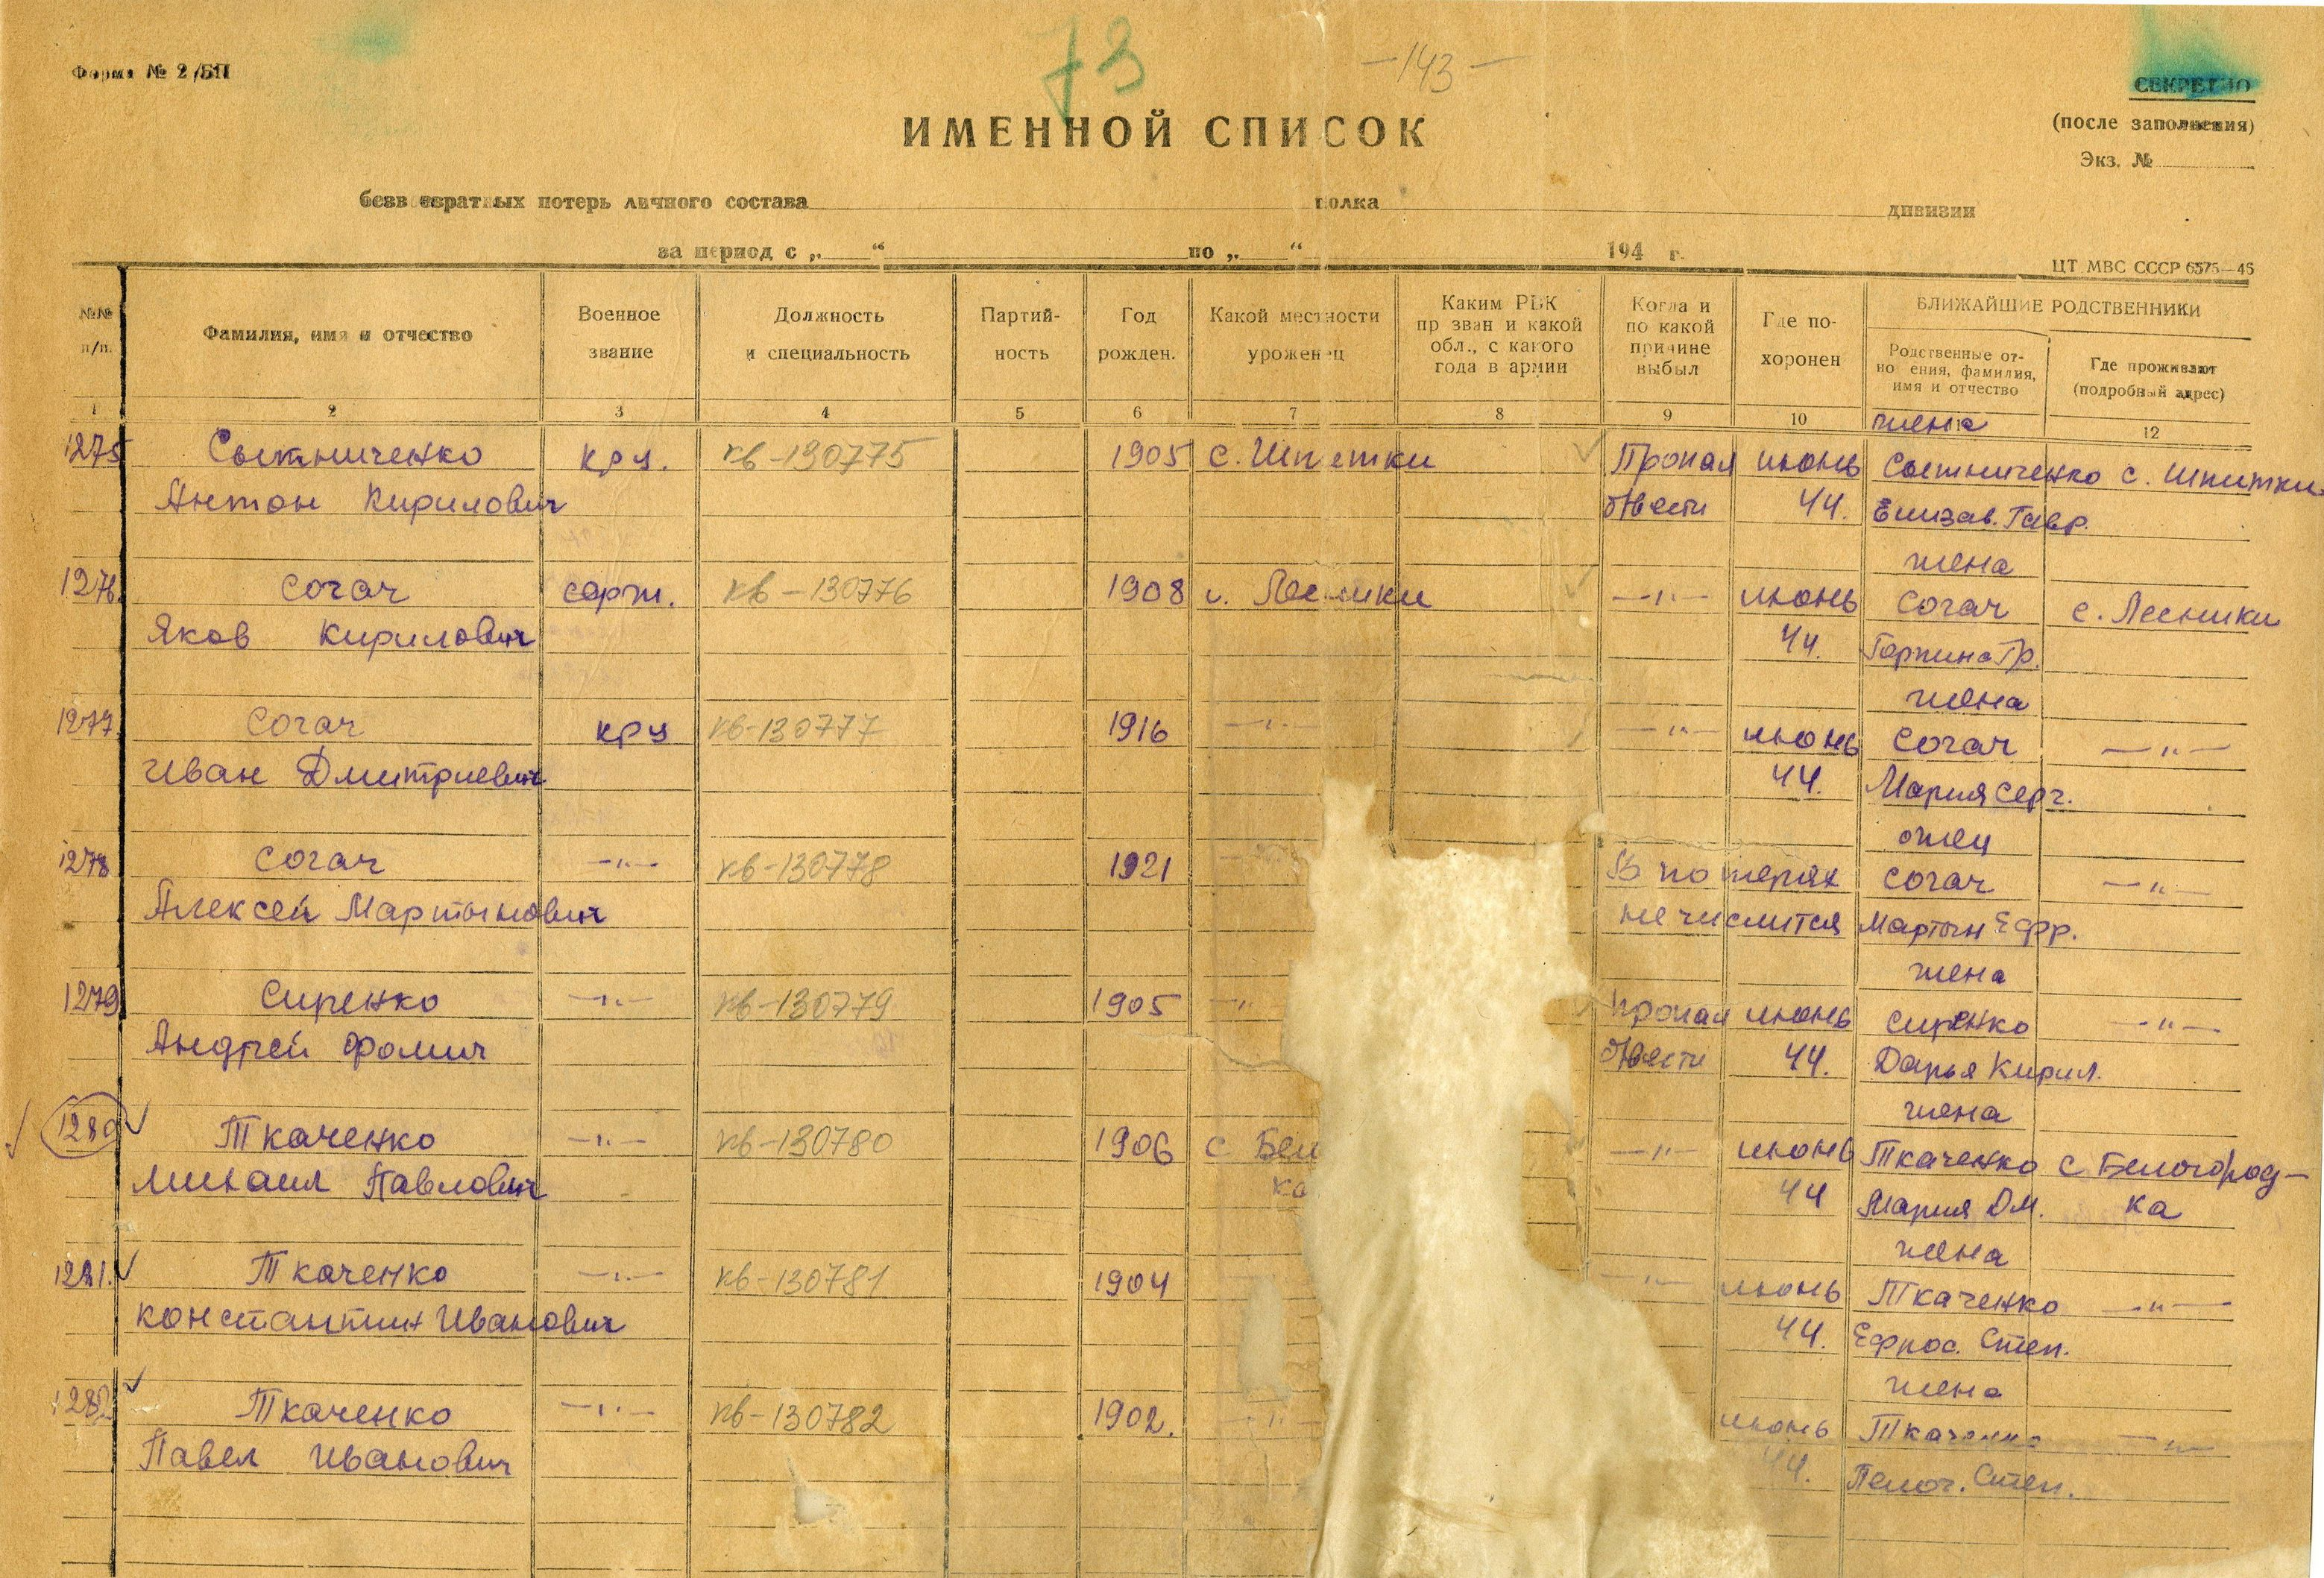 73
—143—
Форма № 2/БП
СЕКРЕТНО
(после заполнения)
Экз. №
ИМЕННОЙ СПИСОК
безвозвратных потерь личного состава полка дивизии
за период с „ “ по „ “ 194 г.
ЦТ МВС СССР 6575—46
№№ п/п.
Фамилия, имя и отчество
Военное звание
Должность и специальность
Партий-ность
Год рожден.
Какой местности уроженец
Каким РВК призван и какой обл., с какого года в армии
Когда и по какой причине выбыл
Где по-хоронен
БЛИЖАЙШИЕ РОДСТВЕННИКИ
Родственные от-ношения, фамилия, имя и отчество
Где проживают (подробный адрес)
1 2 3 4 5 6 7 8 9 10 12
жена
1275 Сытниченко кр-ц. кв-130775 1905 с. Шпитки Пропал июнь Сытниченко с. Шпитки
Антон Кирилович б/вести 44. Елизав. Гавр.
жена
1276. Согач серж. кв-130776 1908 с. Лесники —"— июнь Согач с. Лесники
Яков Кирилович 44. Горпина Гр.
жена
1277. Согач кр-ц кв-130777 1916 —"— —"— июнь Согач —"—
Иван Дмитриевич 44. Мария Серг.
отец
1278 Согач —"— кв-130778 1921 В потерях Согач —"—
Алексей Мартынович не числится Мартын Ефр.
жена
1279 Сиренко —"— кв-130779 1905 —"— пропал июнь Сиренко —"—
Андрей Фомич б/вести 44. Дарья Кирил.
жена
1280 Ткаченко —"— кв-130780 1906 с Бел —"— июнь Ткаченко с Белогород-
Михаил Павлович ка 44 Мария Дм. ка
жена
1281. Ткаченко —"— кв-130781 1904 —"— июнь Ткаченко —"—
Константин Иванович 44. Ефрос. Степ.
жена
1282 Ткаченко —"— кв-130782 1902. —"— июнь Ткаченко —"—
Павел Иванович 44. Пелаг. Степ.